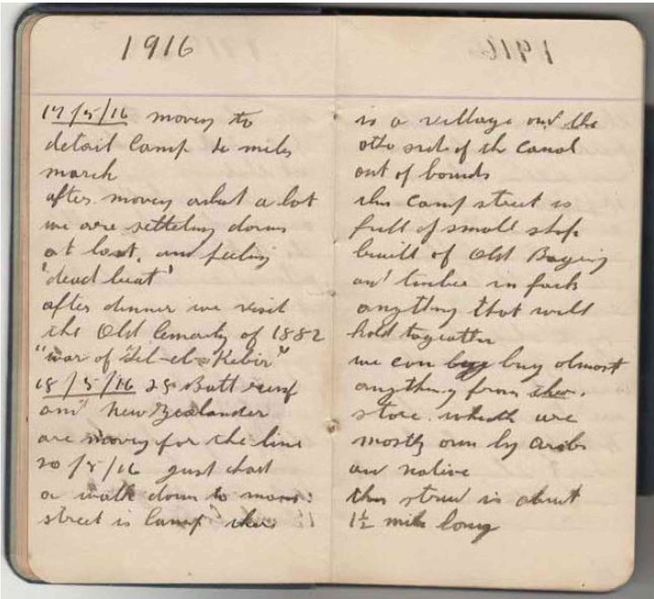 1916
17/5/16 moving to
detail Camp miles
march
after moving about a lot
we are setteling down
at last, and feeling
'dead beat'
after dinner we visit
the Old Cematy of 1882
"war of Tel-el-Kebir"
18/5/16 28 Batt reinf
and New Zealander
are moving for the line
20/5/16 just had
a walk down to main
street is Camp there
1916
is a village on the
oth side of the Canal
out of bounds
this Camp street is
full of small shop
bewilt of Old Baging
and timber in fack
anything that will
hold togeather
we can buy almost
anything from
store. which are
mostly own by arabs
and native
this street is about
1½ mile long